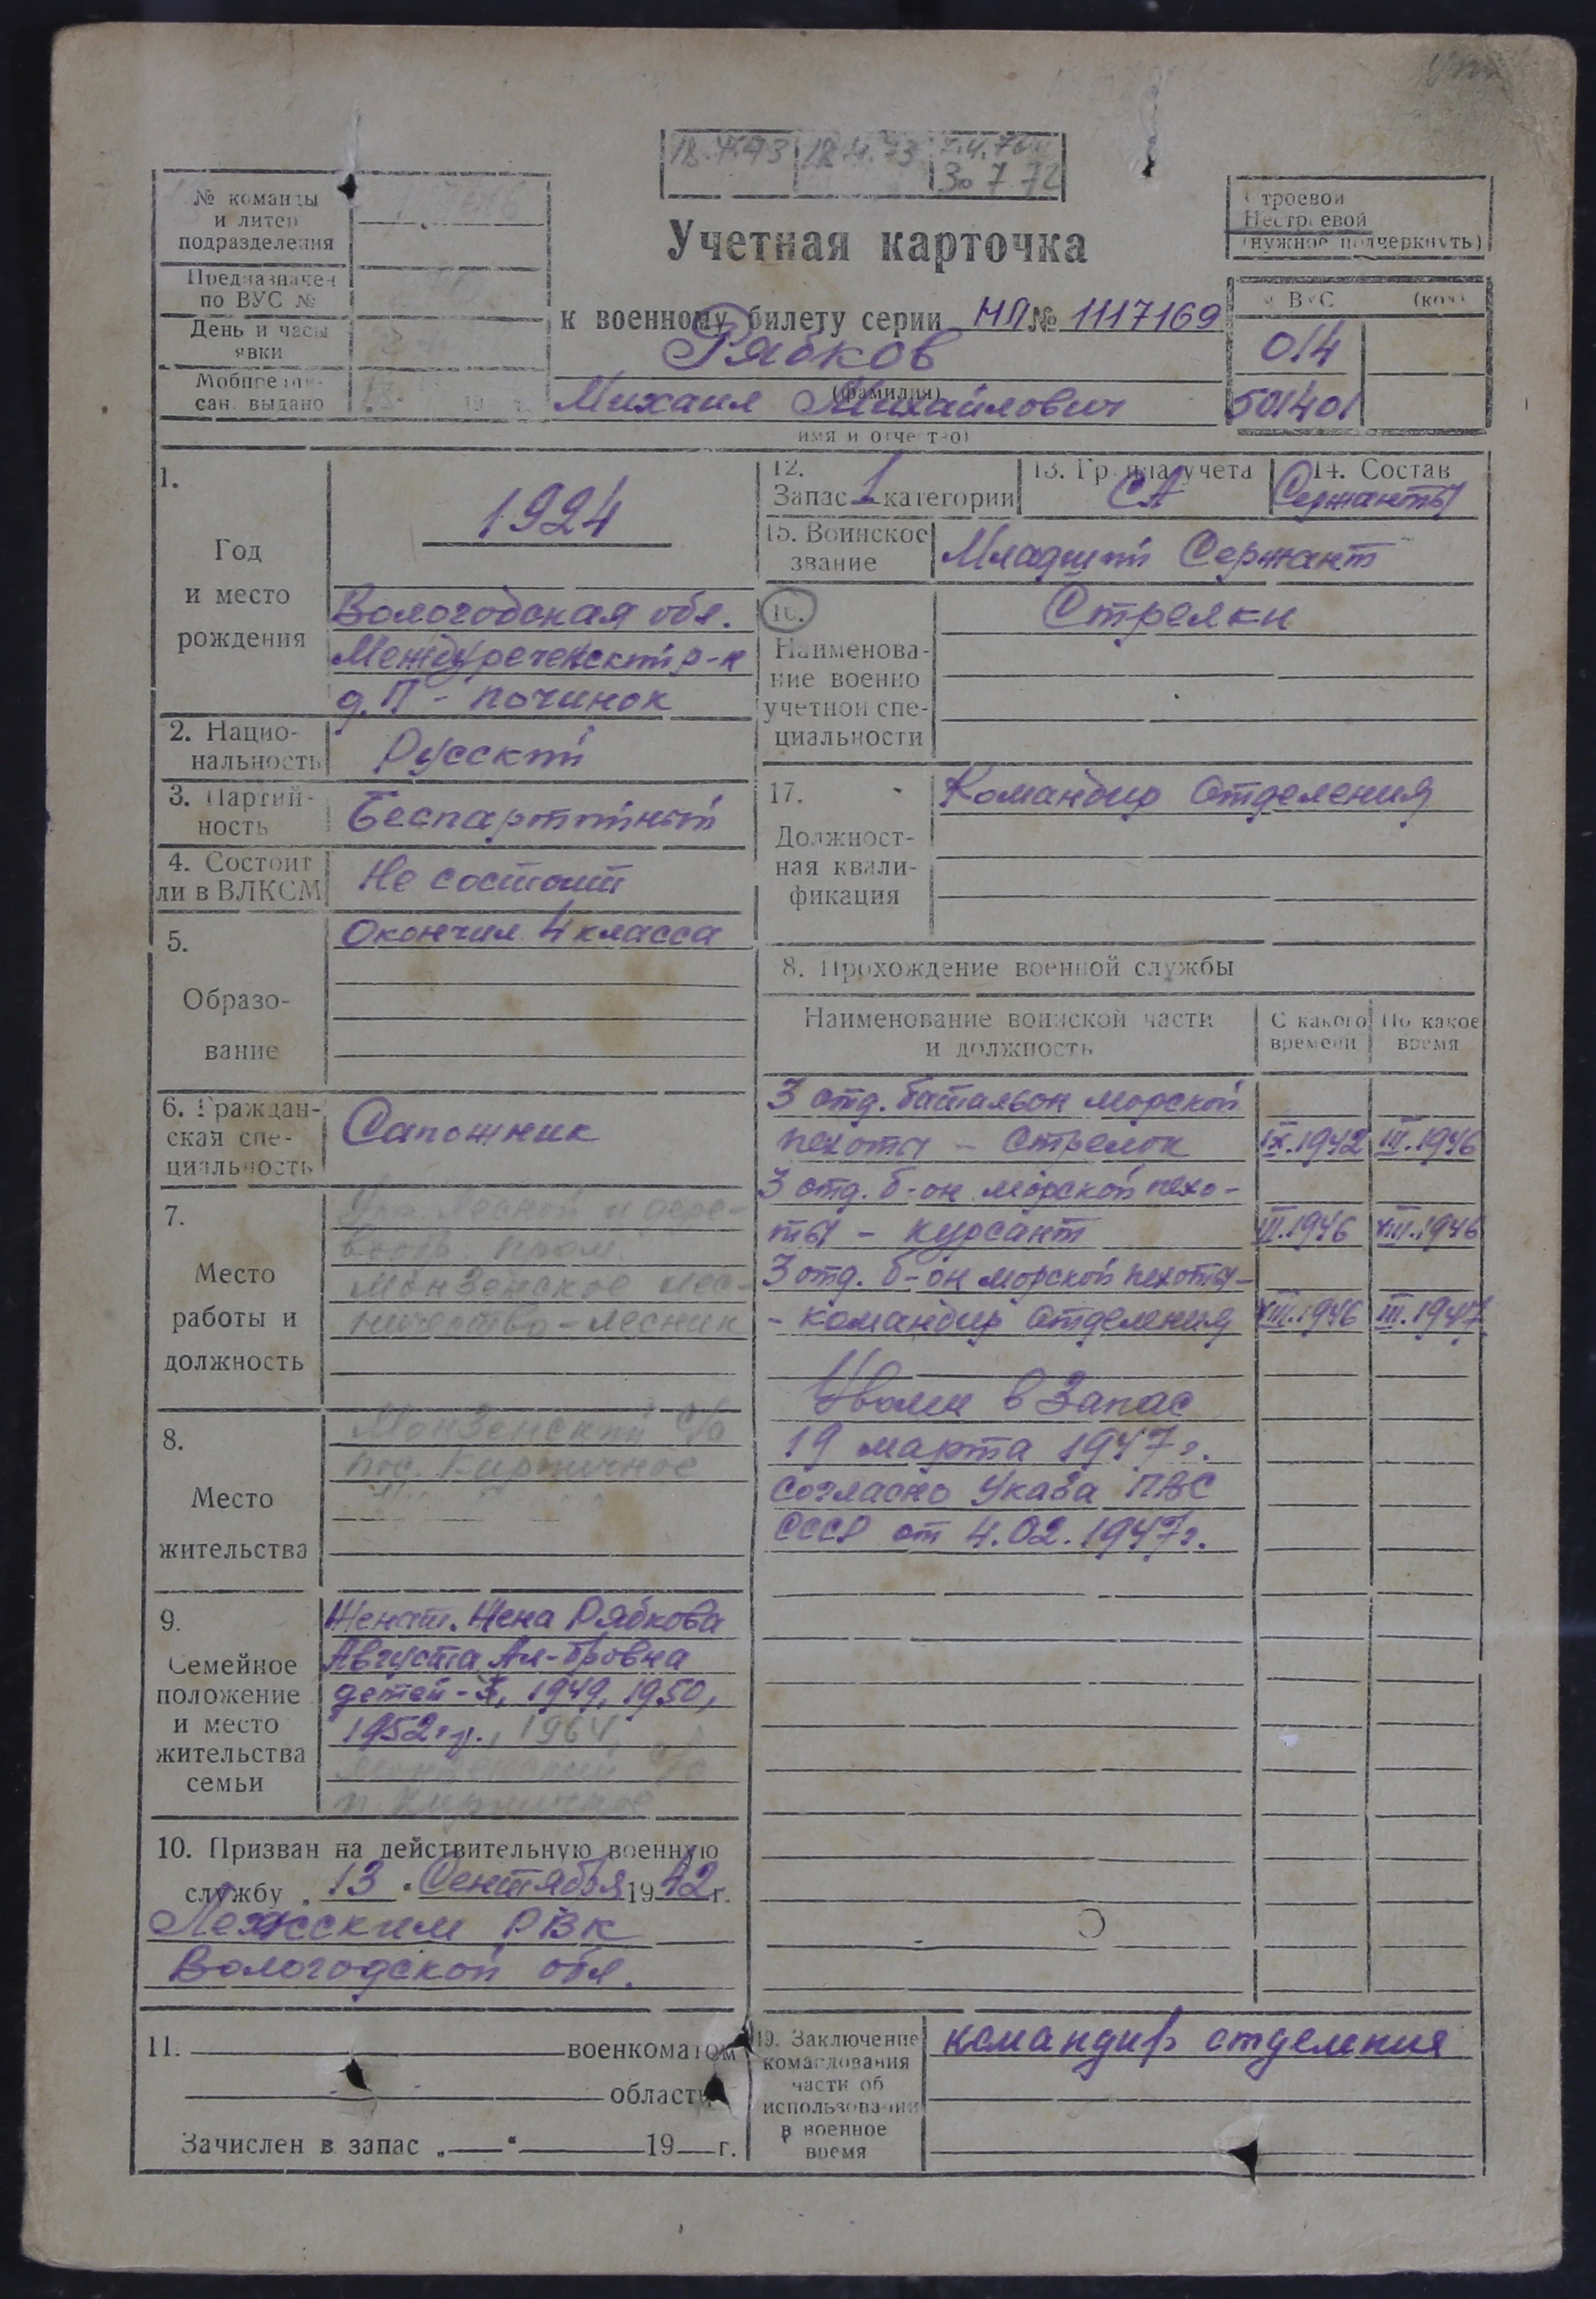 18.4.73 30.7.72
№ команды
и литер
подразделения
Предназначен
по ВУС №
День и часы
явки
Мобпредпи-
сан. выдано
Учетная карточка
к военному билету серии НЛ № 1117169
Рябков
(фамилия)
Михаил Михайлович
имя и отчество)
Строевой
Нестроевой
(нужное подчеркнуть)
№ ВУС (код)
014
501401
1.
Год
и место
рождения
1924
Вологодская обл.
Междуреченский р-н
д. П-починок
2. Нацио-
нальность
Русский
3. Партий-
ность
Беспартийный
4. Состоит
ли в ВЛКСМ
Не состоит
5.
Образо-
вание
Окончил 4 класса
6. Граждан-
ская спе-
циальность
Сапожник
7.
Место
работы и
должность
лесной и дере-
вообр. пром.
Монзенское лес-
ничество - лесник
8.
Место
жительства
Монзенский с/с
пос. Кирпичное
9.
Семейное
положение
и место
жительства
семьи
Женат. Жена Рябкова
Августа Ал-дровна
детей - 1949, 1950,
1952 г.р., 1964
Монзенский с/с
п. Кирпичное
10. Призван на действительную военную
службу „13" Сентября 1942 г.
Лежским РВК
Вологодской обл.
11. военкоматом
области
Зачислен в запас „ " 19 г.
12.
Запас 1 категории
13. Группа учета
СА
14. Состав
Сержанты
15. Воинское
звание
Младший Сержант
16.
Наименова-
ние военно
учетной спе-
циальности
Стрелки
17.
Должност-
ная квали-
фикация
Командир отделения
8. Прохождение военной службы
Наименование воинской части
и должность
С какого
времени
По какое
время
3 отд. батальон морской
пехоты - стрелок IX.1942 III.1946
3 отд. б-он морской пехо-
ты - курсант III.1946 VIII.1946
3 отд. б-он морской пехоты -
- командир отделения VIII.1946 III.1947
Уволен в запас
19 марта 1947 г.
согласно Указа ПВС
СССР от 4.02.1947 г.
19. Заключение
командования
части об
использовании
в военное
время
командир отделения